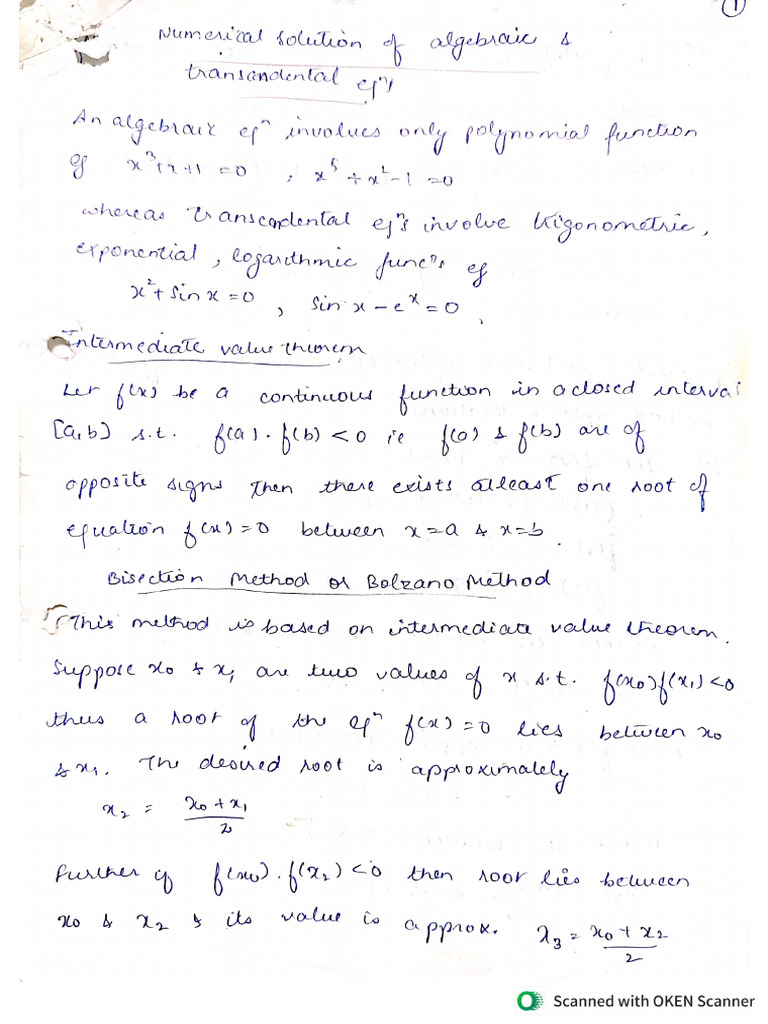 1
Numerical solution of algebraic &
transcendental eqⁿs
An algebraic eqⁿ involves only polynomial function
eg x³+x+1=0 , x⁵+x²-1=0
whereas transcendental eqⁿs involve trigonometric,
exponential, logarithmic funcⁿs eg
x²+sin x=0 , sin x - eˣ=0 .
Intermediate value theorem
Let f(x) be a continuous function in a closed interval
[a,b] s.t. f(a).f(b)<0 ie f(a) & f(b) are of
opposite signs then there exists atleast one root of
equation f(x)=0 between x=a & x=b.
Bisection Method or Bolzano Method
This method is based on intermediate value theorem.
Suppose x₀ & x₁ are two values of x s.t. f(x₀)f(x₁)<0
thus a root of the eqⁿ f(x)=0 lies between x₀
& x₁. The desired root is approximately
x₂ = (x₀+x₁)/2
Further if f(x₀).f(x₂)<0 then root lies between
x₀ & x₂ & its value is approx. x₃ = (x₀+x₂)/2
Scanned with OKEN Scanner